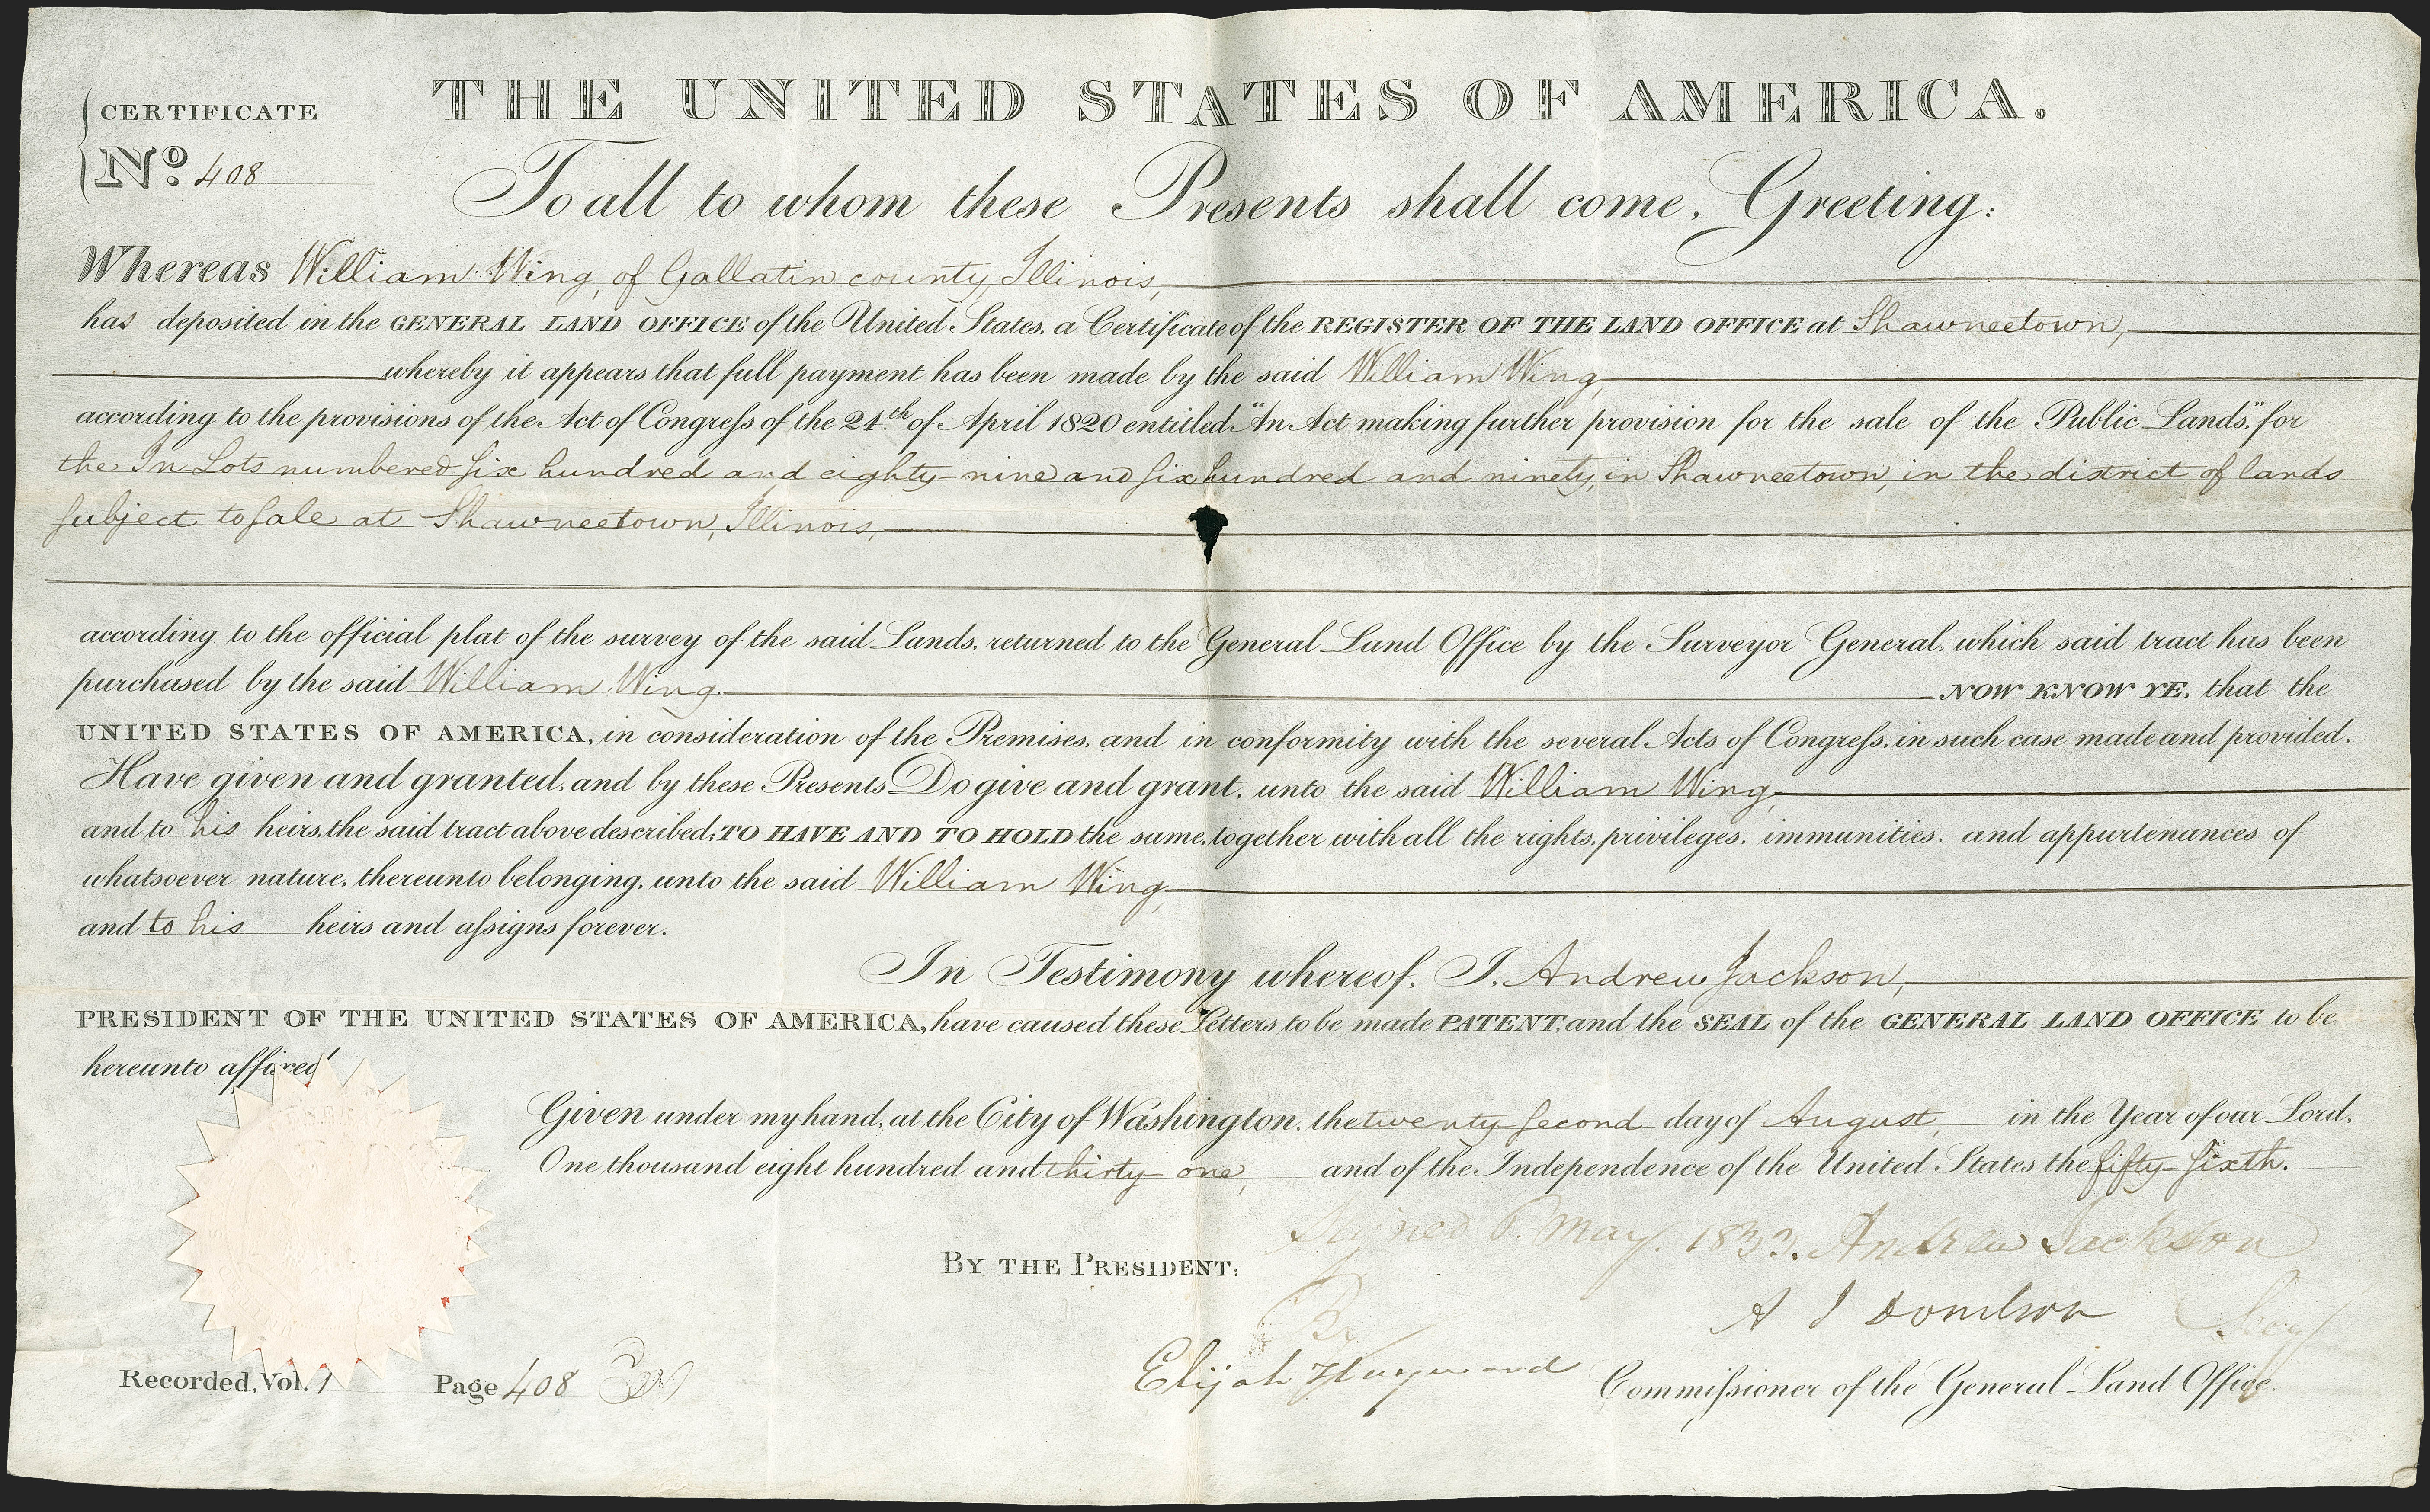 CERTIFICATE
No. 408
THE UNITED STATES OF AMERICA.
To all to whom these Presents shall come, Greeting:
Whereas William Wing, of Gallatin county, Illinois,
has deposited in the GENERAL LAND OFFICE of the United States, a Certificate of the REGISTER OF THE LAND OFFICE at Shawneetown,
whereby it appears that full payment has been made by the said William Wing,
according to the provisions of the Act of Congreſs of the 24th of April 1820 entitled "An Act making further provision for the sale of the Public Lands," for
the In Lots numbered ſix hundred and eighty-nine and ſix hundred and ninety, in Shawneetown, in the district of lands
ſubject to ſale at Shawneetown, Illinois,
according to the official plat of the survey of the said Lands, returned to the General Land Office by the Surveyor General, which said tract has been
purchased by the said William Wing. NOW KNOW YE, that the
UNITED STATES OF AMERICA, in consideration of the Premises, and in conformity with the several Acts of Congreſs, in such case made and provided,
Have given and granted, and by these Presents Do give and grant, unto the said William Wing,
and to his heirs, the said tract above described; TO HAVE AND TO HOLD the same, together with all the rights, privileges, immunities, and appurtenances of
whatsoever nature, thereunto belonging, unto the said William Wing,
and to his heirs and aſsigns forever.
In Testimony whereof, I, Andrew Jackson,
PRESIDENT OF THE UNITED STATES OF AMERICA, have caused these Letters to be made PATENT, and the SEAL of the GENERAL LAND OFFICE to be
hereunto affixed
Given under my hand, at the City of Washington, the twenty ſecond day of August, in the Year of our Lord,
One thousand eight hundred and thirty-one, and of the Independence of the United States the fifty-ſixth.
Signed May. 1833. Andrew Jackson
BY THE PRESIDENT:
By
A J Donelson Secy
Elijah Hayward Commiſsioner of the General Land Office.
Recorded, Vol. 1 Page 408